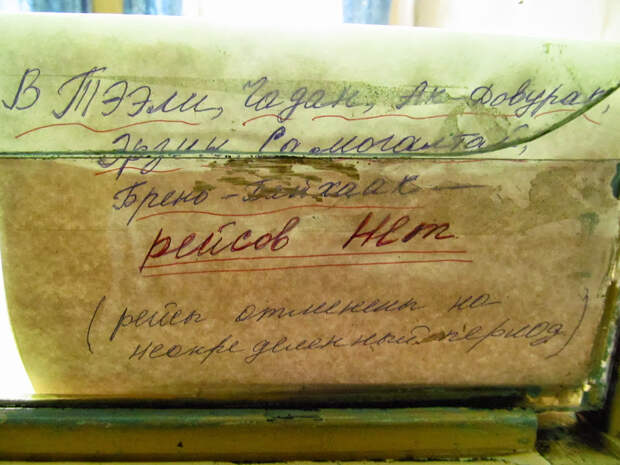 В ТЭЭЛИ, Чадан, Ак-Довурак,
Эрзин Самогалтай,
Брено-Баихаак —
рейсов нет
(рейсы отменены на
неопределенный период)